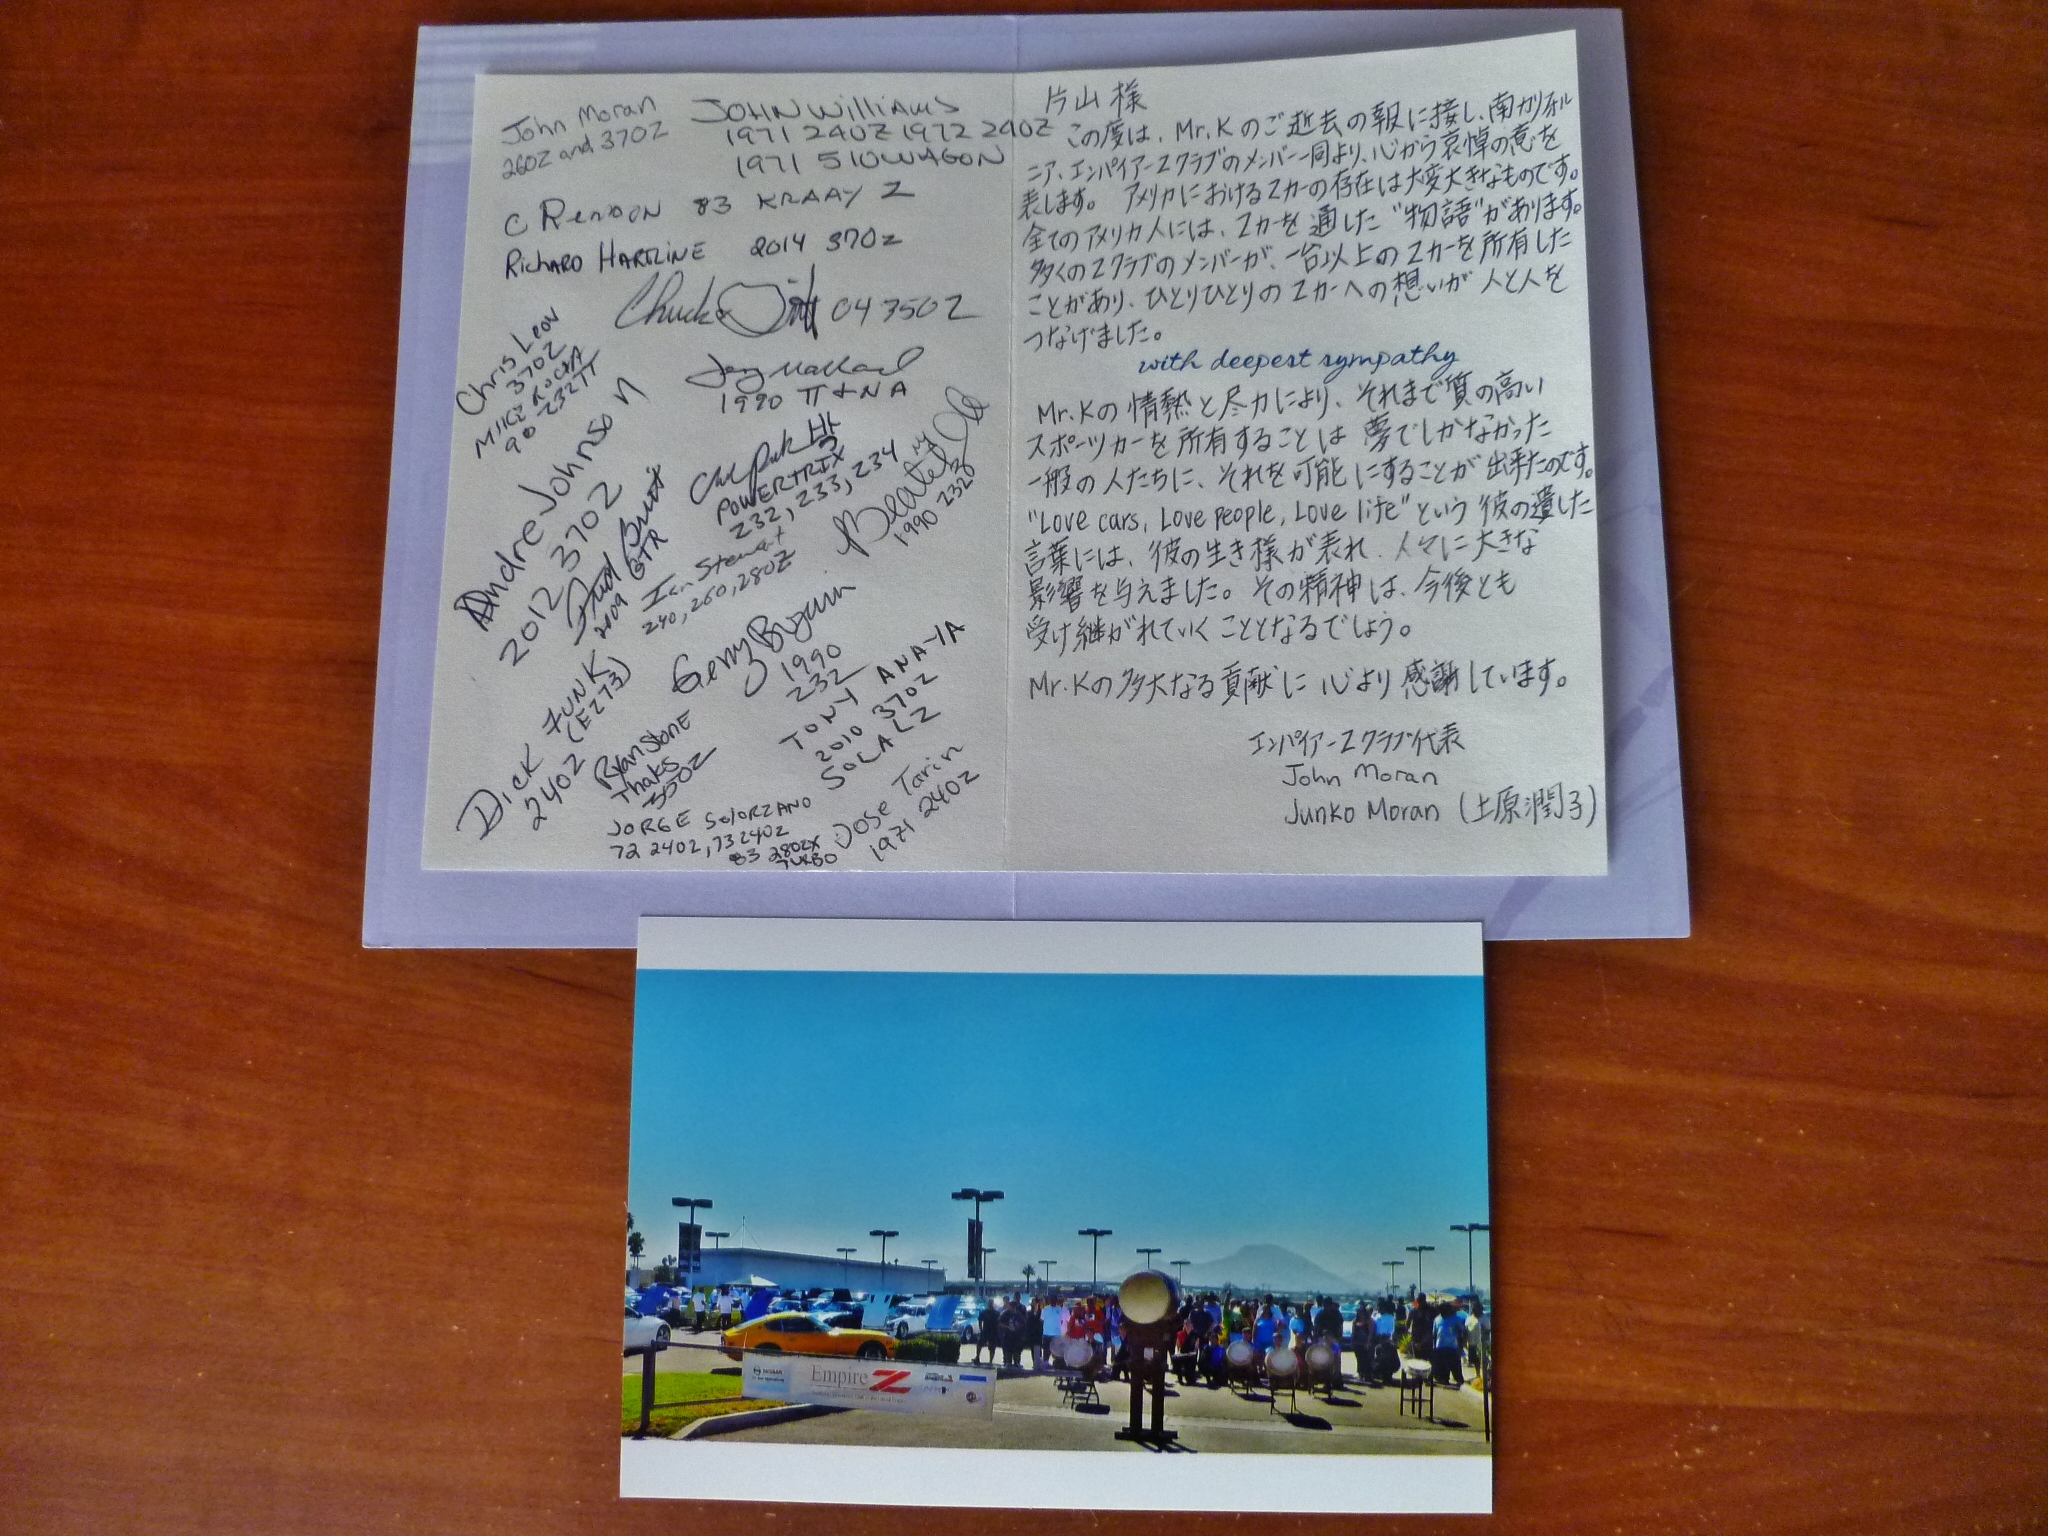 John Moran
260Z and 370Z
JOHN WILLIAMS
1971 240Z 1972 240Z
1971 510 WAGON
C RENDON 83 KRAAY Z
RICHARD HARTLINE 2014 370Z
Chuck 04 350Z
Chris Leon
370Z
MIKE
90 Z32TT
1990 TT & NA
Andre Johnson
2012 370Z
2009 GTR
박
POWERTRIX
Z32, Z33, Z34
Ian Stewart
240, 260, 280Z
1990 Z32
Gerry
1990
Z32
DICK FUNK
240Z (EZ73)
Ryan Stone
Thaks
350Z
TONY ANAYA
2010 370Z
SOCALZ
JORGE SOLORZANO
72 240Z, 73 240Z
83 280ZX
TURBO
Jose Tarin
1971 240Z
片山様
この度は、Mr.Kのご逝去の報に接し、南カリフォル
ニア、エンパイアーZクラブのメンバー一同より、心から哀悼の意を
表します。 アメリカにおけるZカーの存在は大変大きなものです。
全てのアメリカ人には、Zカーを通した“物語”があります。
多くのZクラブのメンバーが、一台以上のZカーを所有した
ことがあり、ひとりひとりのZカーへの想いが人と人を
つなげました。
with deepest sympathy
Mr.Kの情熱と尽力により、それまで質の高い
スポーツカーを所有することは夢でしかなかった
一般の人たちに、それを可能にすることが出来たのです。
“Love cars, Love people, Love life”という彼の遺した
言葉には、彼の生き様が表れ、人々に大きな
影響を与えました。その精神は、今後とも
受け継がれていくこととなるでしょう。
Mr.Kの多大なる貢献に心より感謝しています。
エンパイアーZクラブ代表
John Moran
Junko Moran (上原潤子)
NISSAN
Empire Z